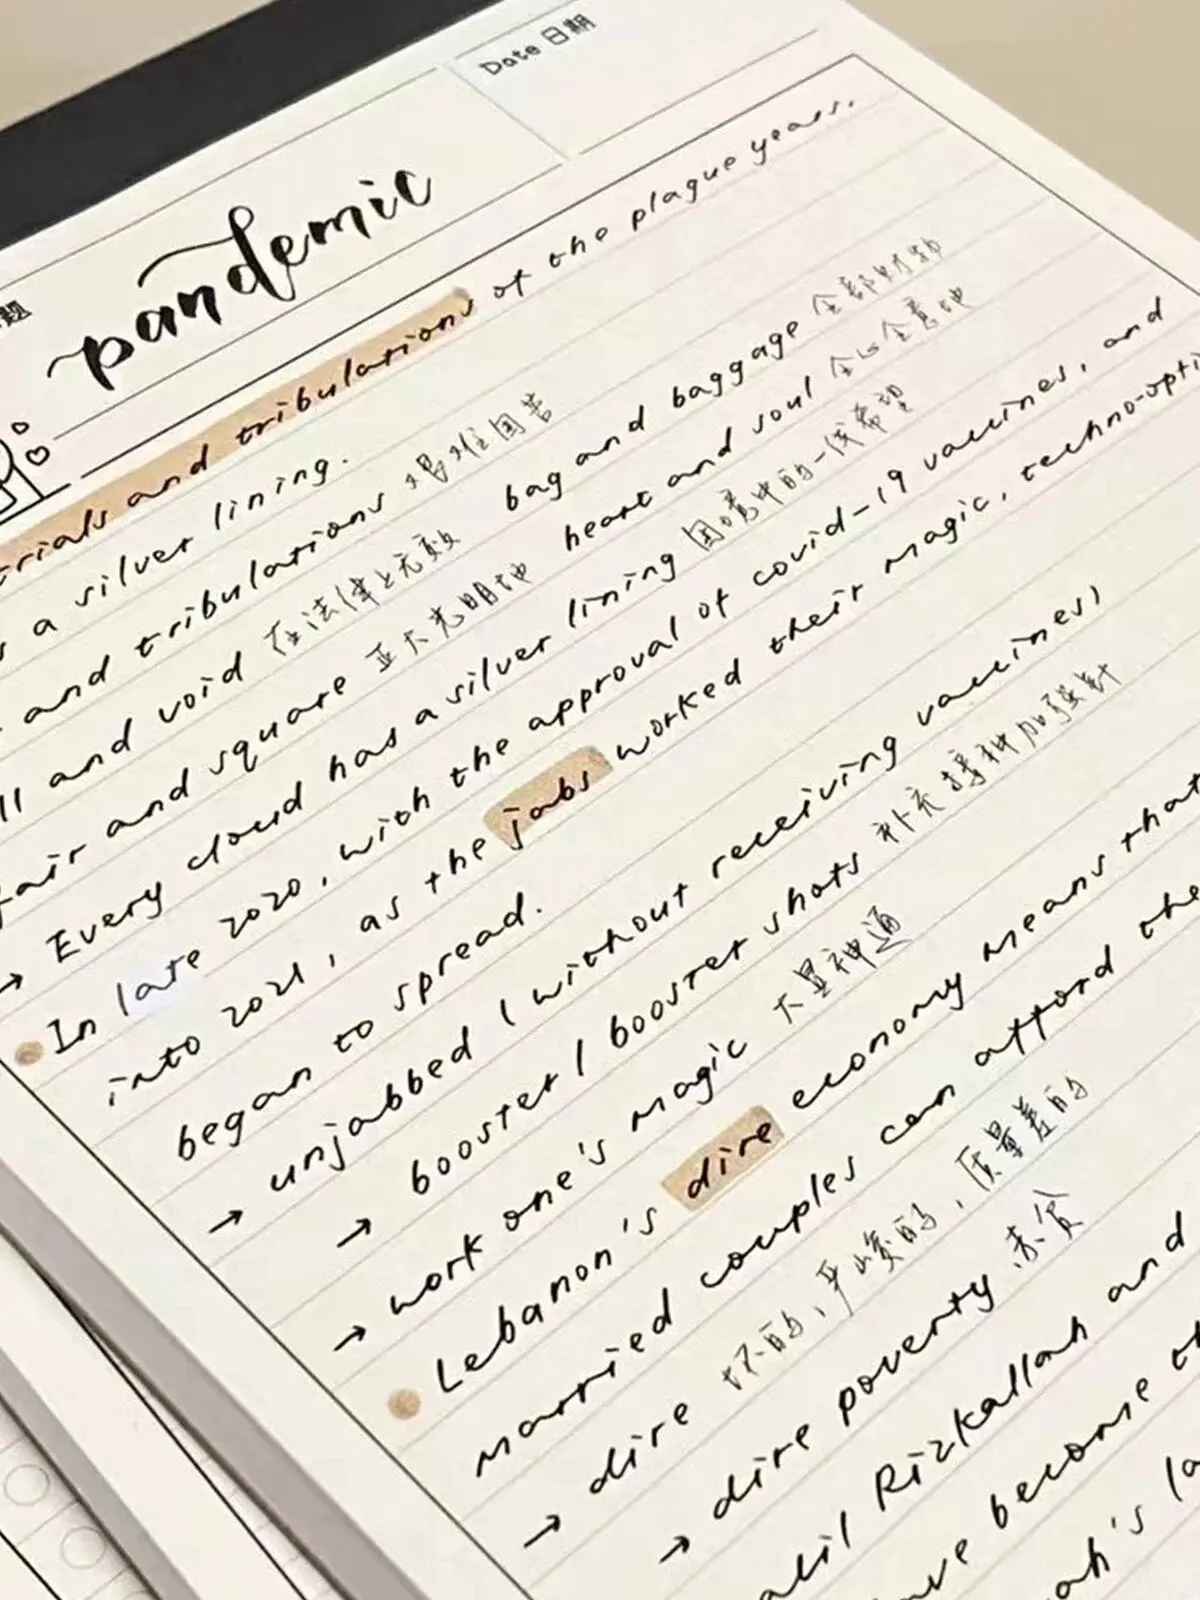 Date 日期
题
pandemic
trials and tribulations of the plague years.
a silver lining.
and tribulations 艰难困苦 bag and baggage 全部财物
and void 在法律上无效 heart and soul 全心全意地
fair and square 正大光明地
→ Every cloud has a silver lining 困境中的一线希望
In late 2020, with the approval of covid-19 vaccines, and
into 2021, as the jabs worked their magic, techno-opti
began to spread.
→ unjabbed (without receiving vaccines)
→ booster / booster shots 补充接种加强针
→ work one's magic 大显神通
Lebanon's dire economy means that
married couples can afford the
→ dire 坏的,严峻的,质量差的
→ dire poverty 赤贫
Rizkallah and
become